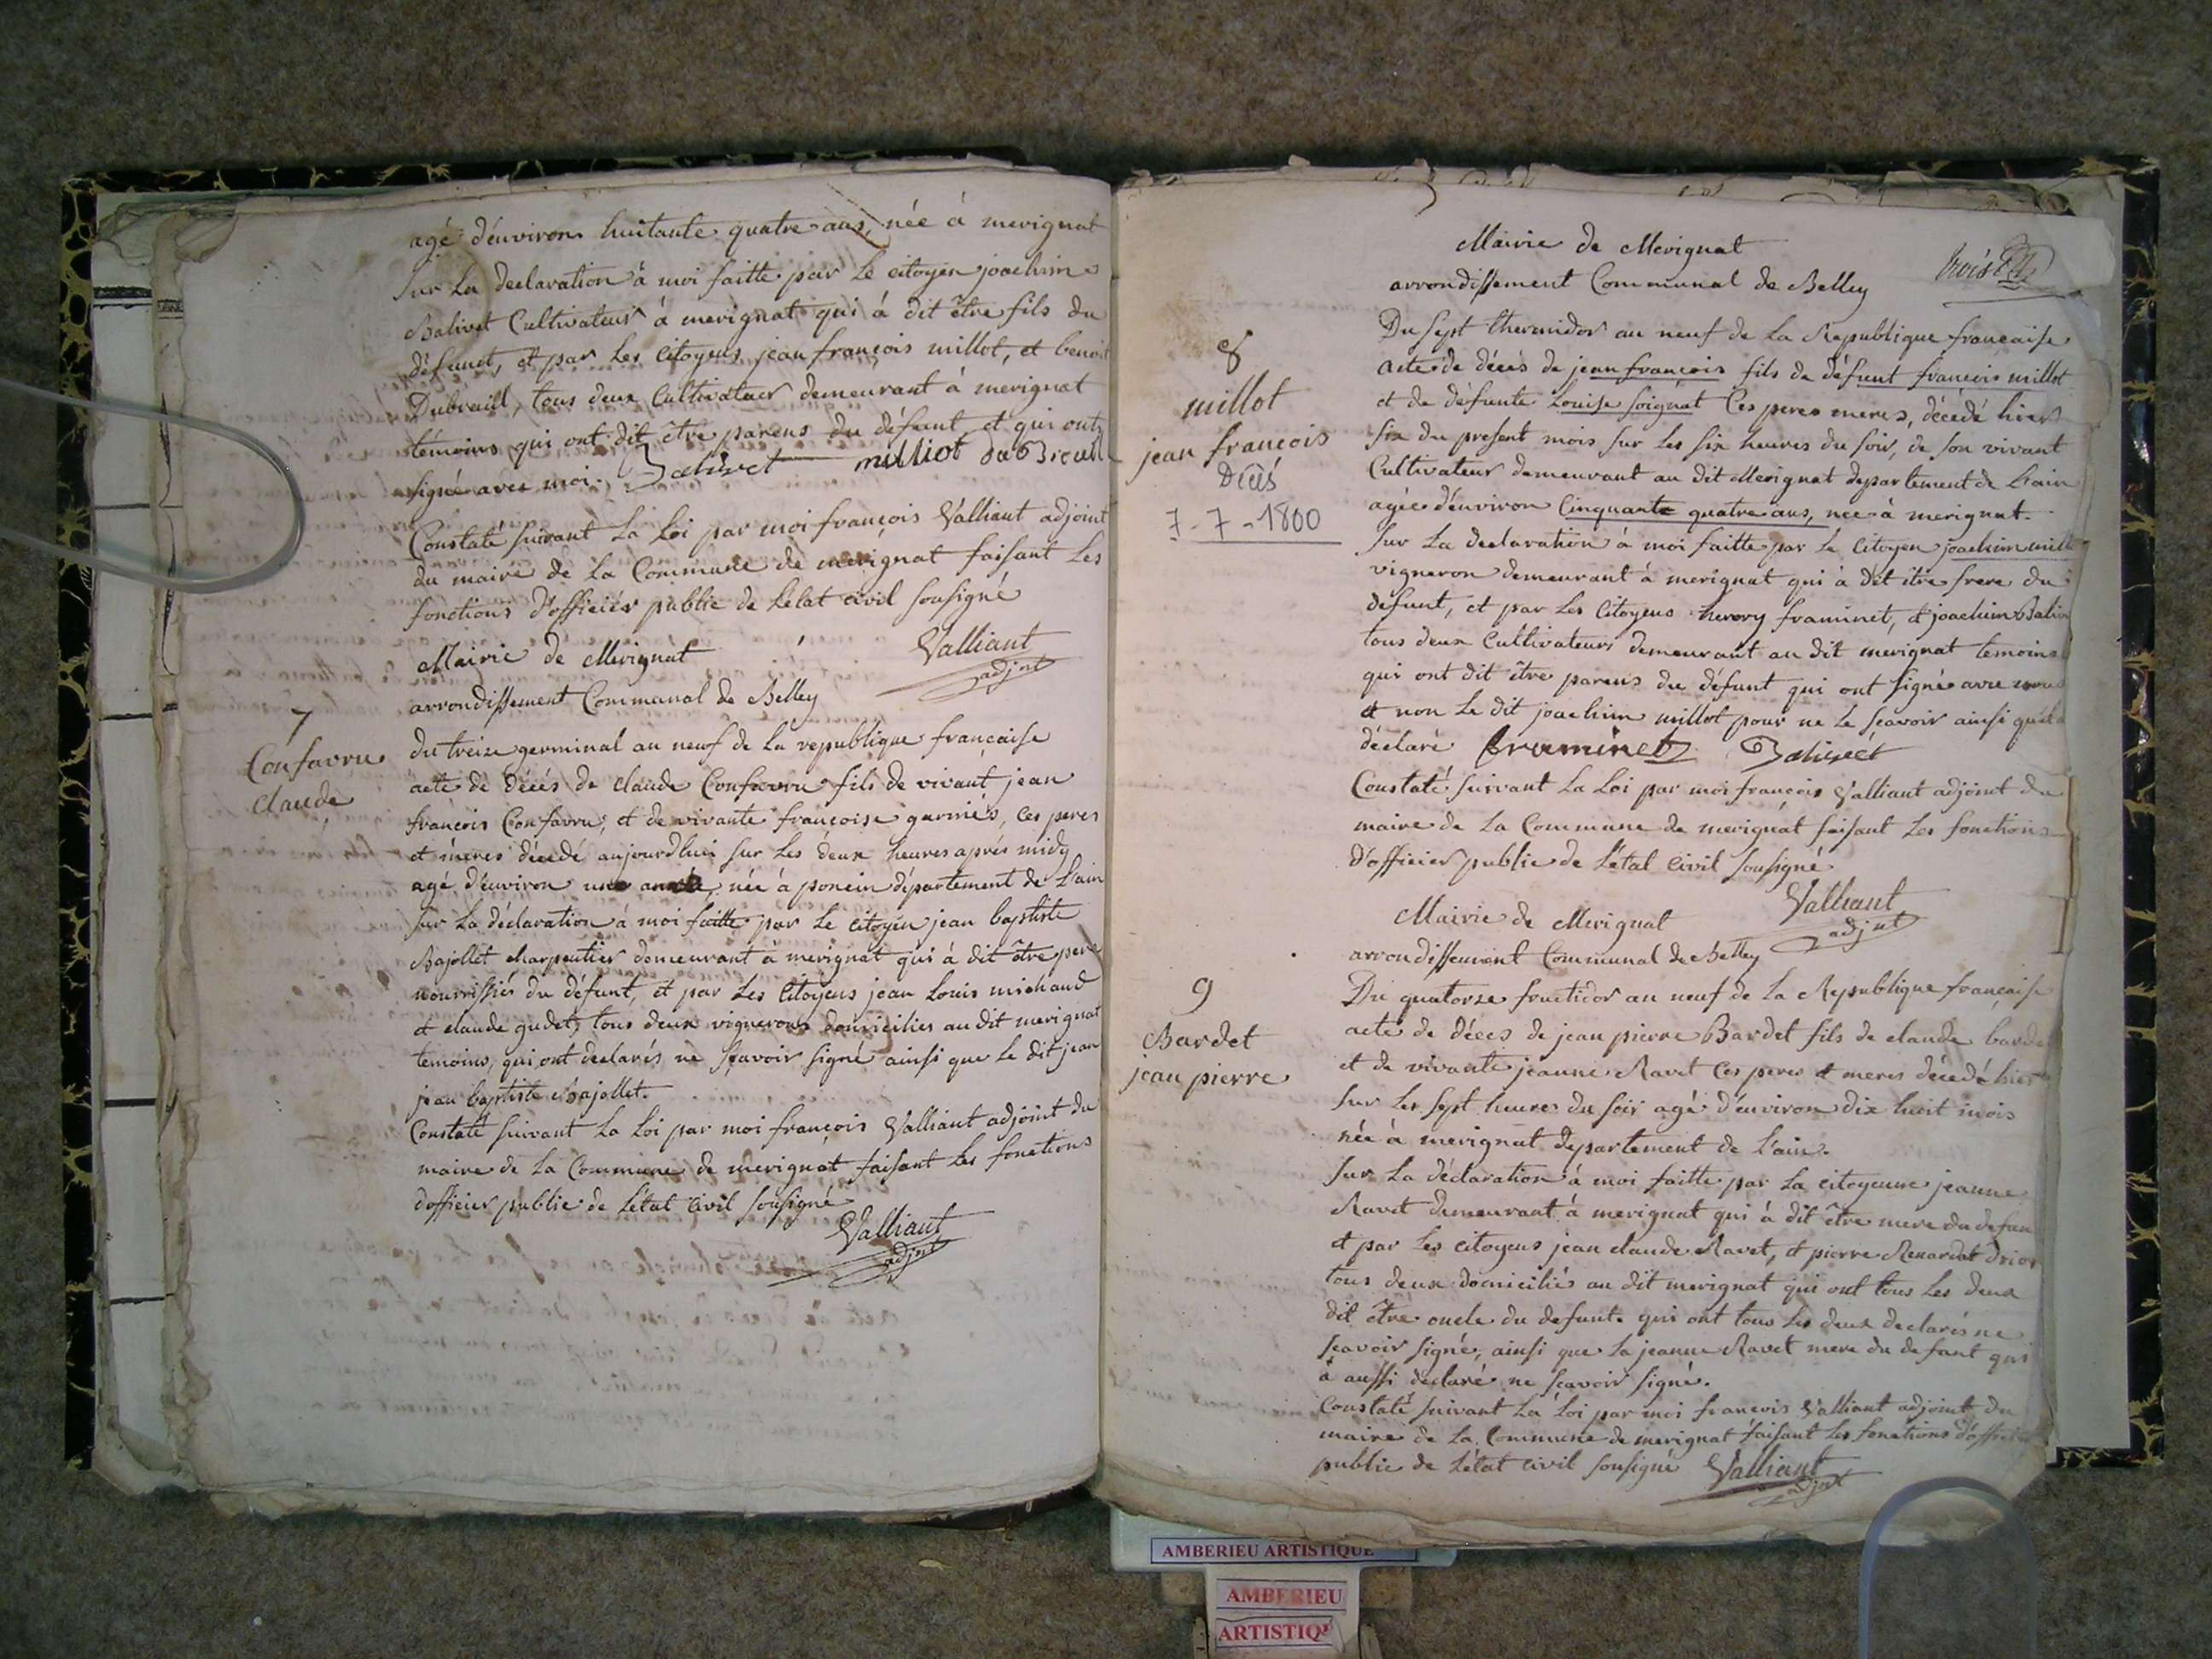 agé d'environ huitante quatre ans, née à merignat
sur la declaration à moi faitte par le citoyen joachim
Balivet Cultivateur à merignat qui à dit être fils du
défunct, et par les citoyens jean françois millot, et benoit
Dubreuil, tous deux Cultivateur demeurant à merignat
témoins qui ont dit être parens du défunt et qui ont
signé avec moi. Balivet milliot du Breuil
Constaté suivant la Loi par moi françois Valliant adjoint
du maire de la Commune de merignat faisant les
fonctions d'officier public de l'état civil sousigné
Valliant
adjnt
Mairie de Merignat
arrondissement Communal de Belley
7
Confavru
Claude
du treize germinal an neuf de la republique française
acte de décès de claude Confavru fils de vivant jean
françois Confavru, et de vivante françoise guriniés, ces peres
et meres décedé aujourdhui sur les deux heures après midy
agé d'environ une année née à poncin département de L'ain
sur la déclaration à moi faitte par le citoyen jean baptiste
Bajollet charpentier demeurant à merignat qui à dit être pere
nourrissiés du défunt, et par les Citoyens jean Louis michaud
et claude gudet, tous deux vignerons domiciliés au dit merignat
temoins, qui ont declarés ne sçavoir signé ainsi que le dit jean
jean baptiste Bajollet.
Constaté suivant la Loi par moi françois Valliant adjoint du
maire de la Commune de merignat faisant les fonctions
dofficier public de l'état civil sousigné
Valliant
adjnt
Mairie de Merignat
arrondissement Communal de Belley
trois
8
millot
jean françois
Décès
7-7-1800
Du sept thermidor an neuf de la Republique française
acte de décès de jean françois fils de défunt françois millot
et de défunte Louise soignat Ces peres meres, décédé hier
six du present mois sur les six heures du soir, de son vivant
Cultivateur demeurant au dit Merignat departement de l'ain
agée d'environ Cinquante quatre ans, nee à merignat.
sur la declaration à moi faitte par le Citoyen joachim mill
vigneron demeurant à merignat qui à dit être frere du
defunt, et par les Citoyens framinet, et joachim Baliv
tous deux Cultivateurs demeurant au dit merignat temoins
qui ont dit être parens du défunt qui ont signé avec nous
et non le dit joachim millot pour ne le sçavoir ainsi qu'il a
déclaré framinet Balivet
Constaté suivant la Loi par moi françois Valliant adjoint du
maire de la Commune de merignat faisant les fonctions
D'officier public de l'état civil sousigné
Valliant
adjnt
Mairie de Merignat
arrondissement Communal de Belley
9
Bardet
jean pierre
Du quatorze fructidor an neuf de la Republique française
acte de décès de jean pierre Bardet fils de claude barde
et de vivante jeanne Ravet Ces peres et meres décédé hier
sur les sept heures du soir agé d'environ dix huit mois
née à merignat departement de l'ain.
sur la déclaration à moi faitte par la citoyenne jeanne
Ravet demeurant à merignat qui à dit être mere du defun
et par les citoyens jean claude Ravet, et pierre Renardat
tous deux domiciliés au dit merignat qui ont tous les deux
dit être oncle du defunt. qui ont tous les deux declarés ne
sçavoir signé, ainsi que la jeanne Ravet mere du defunt qui
à aussi declaré ne sçavoir signé.
Constaté suivant la Loi par moi françois Valliant adjoint du
maire de la Commune de merignat faisant les fonctions d'offici
public de l'état civil sousigné Valliant
adjnt
AMBERIEU ARTISTIQUE
AMBERIEU
ARTISTIQ